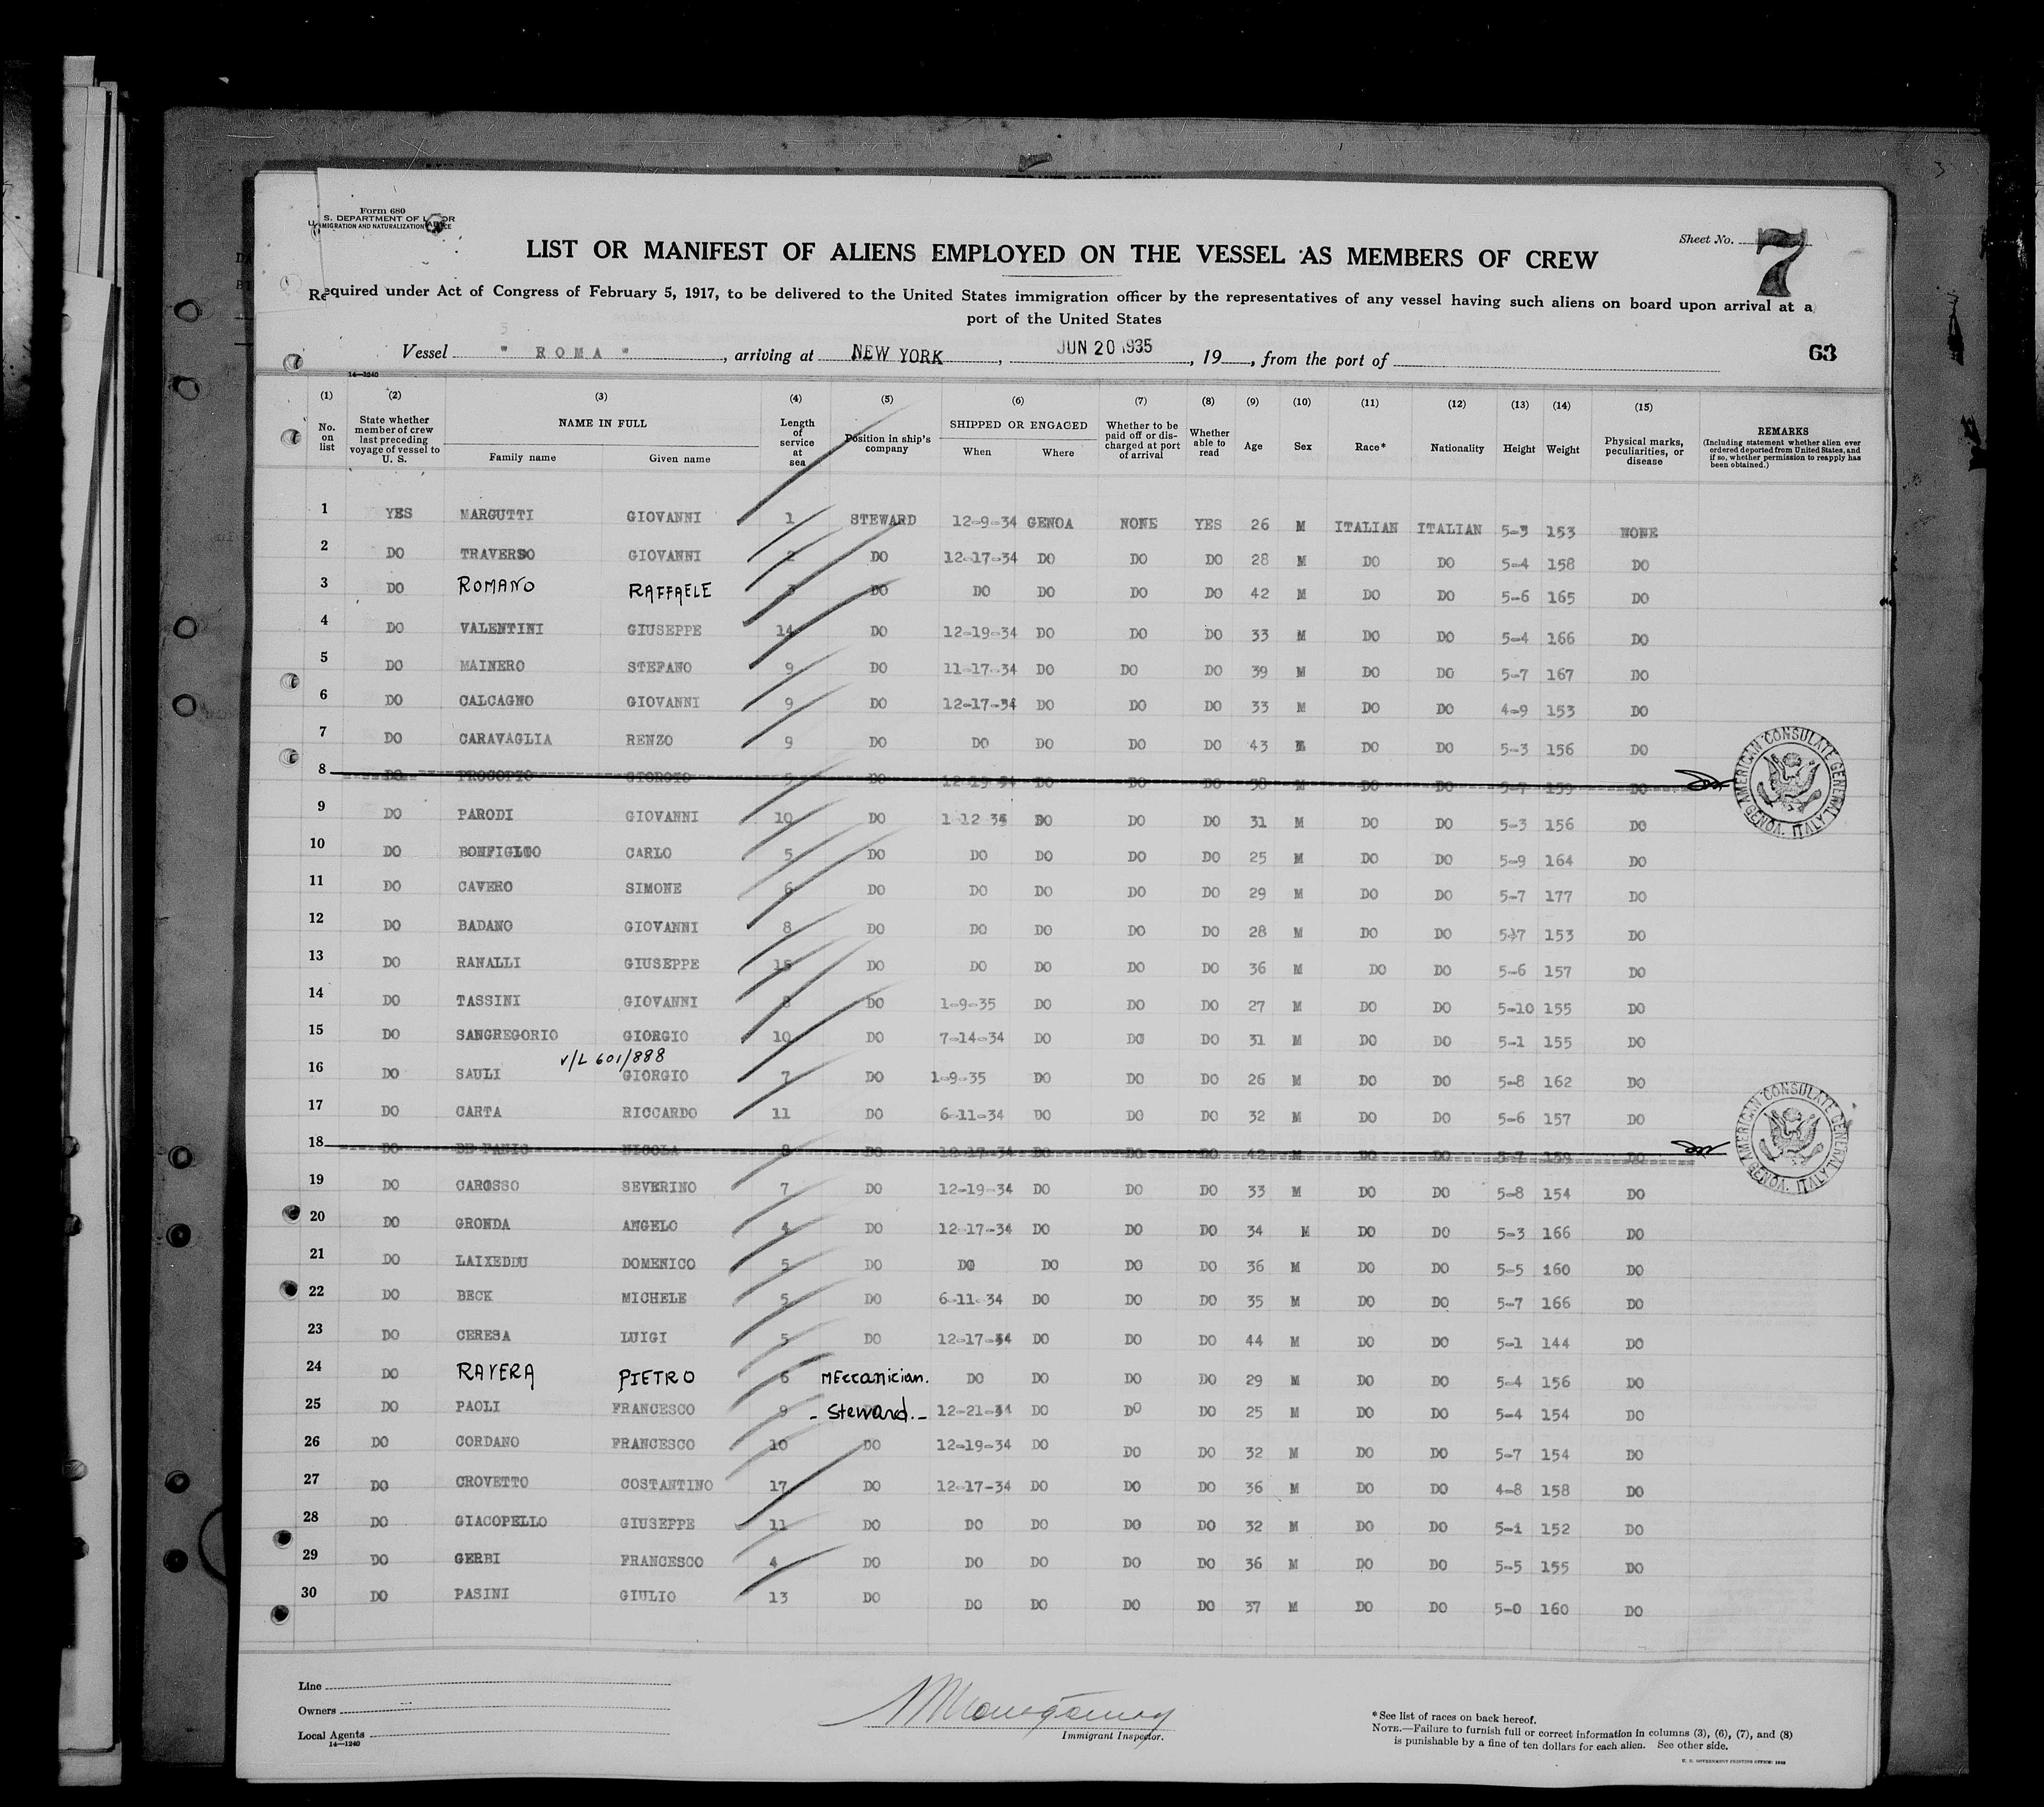 Form 680
U. S. DEPARTMENT OF LABOR
IMMIGRATION AND NATURALIZATION SERVICE
Sheet No. 7
LIST OR MANIFEST OF ALIENS EMPLOYED ON THE VESSEL AS MEMBERS OF CREW
Required under Act of Congress of February 5, 1917, to be delivered to the United States immigration officer by the representatives of any vessel having such aliens on board upon arrival at a
port of the United States
Vessel " ROMA ", arriving at NEW YORK, JUN 20 1935, 19, from the port of
63
14—1240
(1) (2) (3) (4) (5) (6) (7) (8) (9) (10) (11) (12) (13) (14) (15)
No. on list State whether member of crew last preceding voyage of vessel to U. S. NAME IN FULL Family name Given name Length of service at sea Position in ship's company SHIPPED OR ENGAGED When Where Whether to be paid off or discharged at port of arrival Whether able to read Age Sex Race* Nationality Height Weight Physical marks, peculiarities, or disease REMARKS (Including statement whether alien ever ordered deported from United States, and if so, whether permission to reapply has been obtained.)
1 YES MARGUTTI GIOVANNI 1 STEWARD 12-9-34 GENOA NONE YES 26 M ITALIAN ITALIAN 5-3 153 NONE
2 DO TRAVERSO GIOVANNI 2 DO 12-17-34 DO DO DO 28 M DO DO 5-4 158 DO
3 DO ROMANO RAFFAELE DO DO DO DO DO 42 M DO DO 5-6 165 DO
4 DO VALENTINI GIUSEPPE 14 DO 12-19-34 DO DO DO 33 M DO DO 5-4 166 DO
5 DO MAINERO STEFANO 9 DO 11-17-34 DO DO DO 39 M DO DO 5-7 167 DO
6 DO CALCAGNO GIOVANNI 9 DO 12-17-34 DO DO DO 33 M DO DO 4-9 153 DO
7 DO CARAVAGLIA RENZO 9 DO DO DO DO DO 43 M DO DO 5-3 156 DO
8 DO PROCOPIO GIORGIO DO 12-19-34 DO DO DO 38 M DO DO 5-7 159 DO
AMERICAN CONSULATE GENERAL GENOA, ITALY
9 DO PARODI GIOVANNI 10 DO 1-12 35 DO DO DO 31 M DO DO 5-3 156 DO
10 DO BONFIGLIO CARLO 5 DO DO DO DO DO 25 M DO DO 5-9 164 DO
11 DO CAVERO SIMONE 6 DO DO DO DO DO 29 M DO DO 5-7 177 DO
12 DO BADANO GIOVANNI 8 DO DO DO DO DO 28 M DO DO 5-7 153 DO
13 DO RANALLI GIUSEPPE 15 DO DO DO DO DO 36 M DO DO 5-6 157 DO
14 DO TASSINI GIOVANNI 8 DO 1-9-35 DO DO DO 27 M DO DO 5-10 155 DO
15 DO SANGREGORIO GIORGIO 10 DO 7-14-34 DO DO DO 31 M DO DO 5-1 155 DO
v/L 601/888
16 DO SAULI GIORGIO 7 DO 1-9-35 DO DO DO 26 M DO DO 5-8 162 DO
17 DO CARTA RICCARDO 11 DO 6-11-34 DO DO DO 32 M DO DO 5-6 157 DO
18 DO DE PANIC NICOLA 8 DO 12-17-34 DO DO DO 42 M DO DO 5-7 159 DO
AMERICAN CONSULATE GENERAL GENOA, ITALY
19 DO CAROSSO SEVERINO 7 DO 12-19-34 DO DO DO 33 M DO DO 5-8 154 DO
20 DO GRONDA ANGELO 4 DO 12-17-34 DO DO DO 34 M DO DO 5-3 166 DO
21 DO LAIXEDDU DOMENICO 5 DO DO DO DO DO 36 M DO DO 5-5 160 DO
22 DO BECK MICHELE 5 DO 6-11-34 DO DO DO 35 M DO DO 5-7 166 DO
23 DO CERESA LUIGI 5 DO 12-17-34 DO DO DO 44 M DO DO 5-1 144 DO
24 DO RAVERA PIETRO 6 MEccanician. DO DO DO DO 29 M DO DO 5-4 156 DO
25 DO PAOLI FRANCESCO 9 - Steward. - 12-21-34 DO DO DO 25 M DO DO 5-4 154 DO
26 DO CORDANO FRANCESCO 10 DO 12-19-34 DO DO DO 32 M DO DO 5-7 154 DO
27 DO CROVETTO COSTANTINO 17 DO 12-17-34 DO DO DO 36 M DO DO 4-8 158 DO
28 DO GIACOPELLO GIUSEPPE 11 DO DO DO DO DO 32 M DO DO 5-1 152 DO
29 DO GERBI FRANCESCO 4 DO DO DO DO DO 36 M DO DO 5-5 155 DO
30 DO PASINI GIULIO 13 DO DO DO DO DO 37 M DO DO 5-0 160 DO
Line
Owners
Local Agents
14—1240
Immigrant Inspector.
*See list of races on back hereof.
NOTE.—Failure to furnish full or correct information in columns (3), (6), (7), and (8)
is punishable by a fine of ten dollars for each alien. See other side.
U. S. GOVERNMENT PRINTING OFFICE